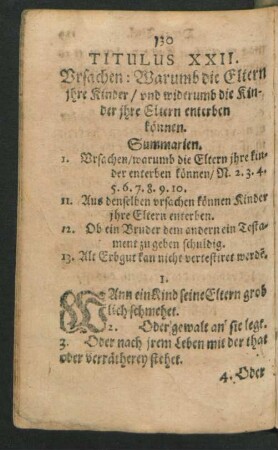 130
TITULUS XXII.
Vrsachen: Warumb die Eltern
jhre Kinder / vnd widerumb die Kin-
der jhre Eltern enterben
können.
Summarien.
1. Vrsachen / warumb die Eltern jhre kin-
der enterben können / N. 2. 3. 4.
5. 6. 7. 8. 9. 10.
11. Aus denselben vrsachen können Kinder
jhre Eltern enterben.
12. Ob ein Bruder dem andern ein Testa-
ment zu geben schuldig.
13. Alt Erbgut kan nicht vertestiret werdē.
1.
WAnn ein Kind seine Eltern grob
lich schmehet.
2. Oder gewalt an sie legt.
3. Oder nach jrem Leben mit der that
oder verrätherey stehet.
4. Oder